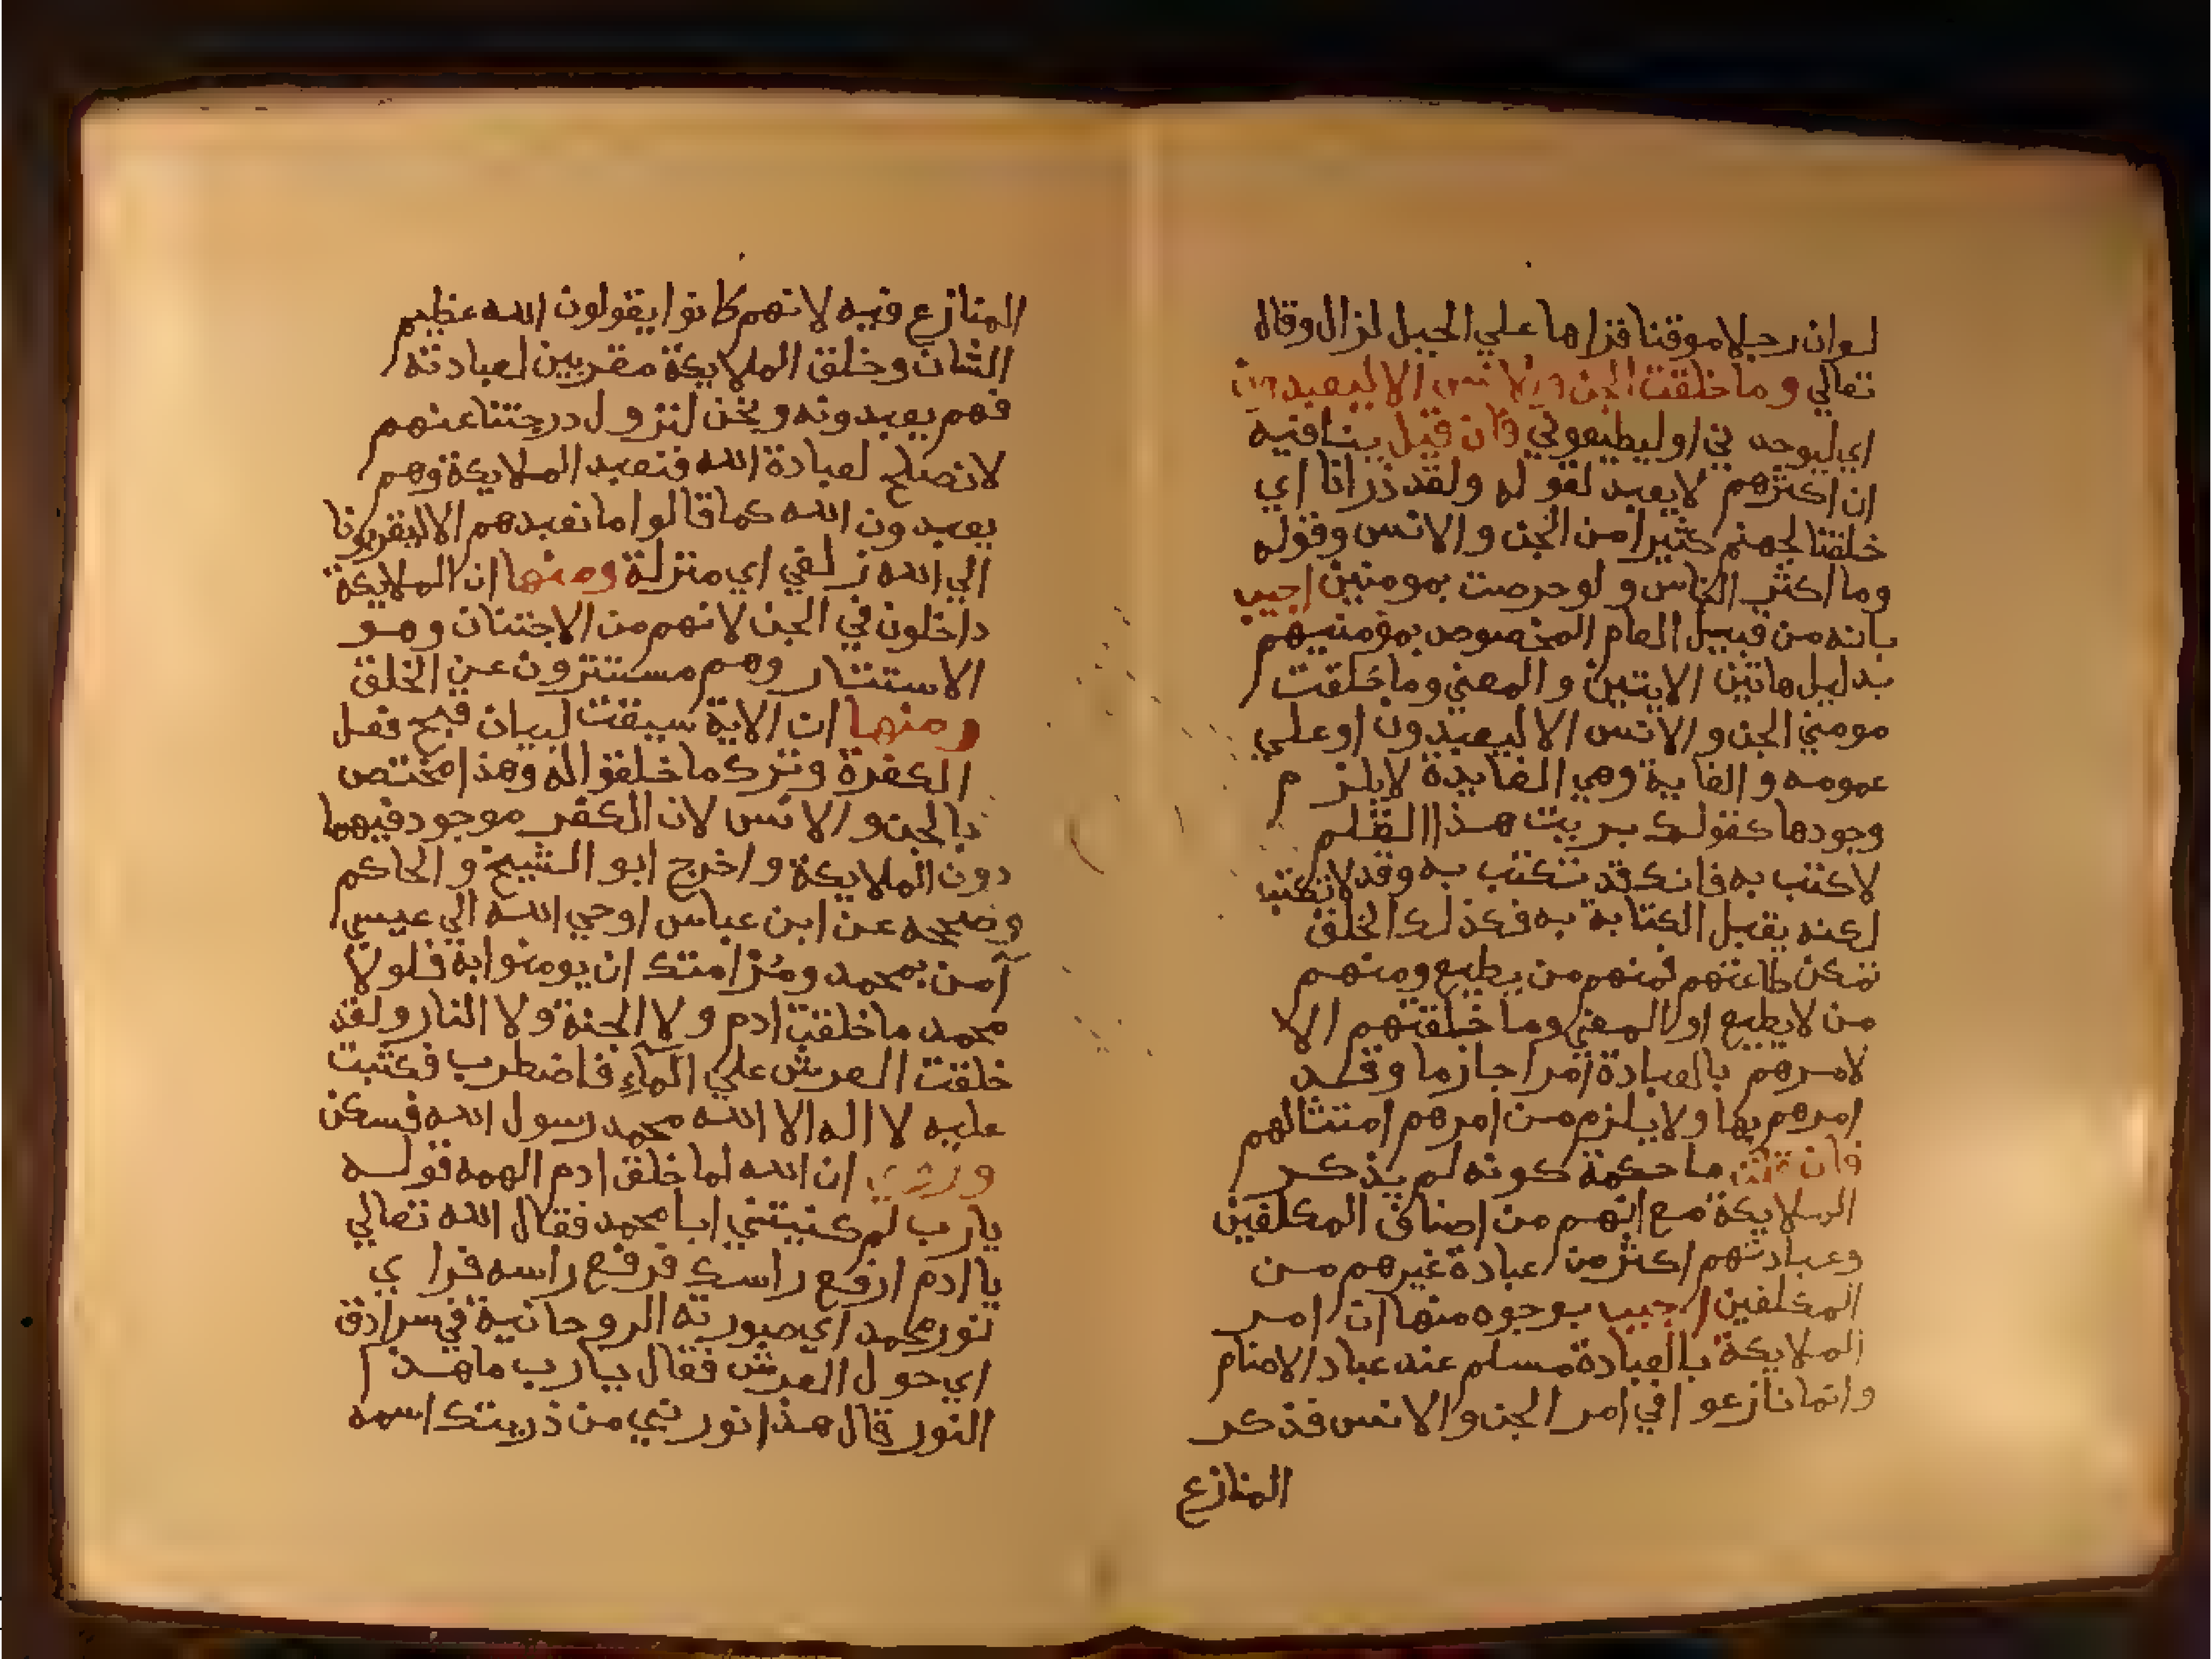 لوان رجلا موقنا قراها علي الجبل لزال وقال
تعالي وما خلقت الجن والانس الا ليعبدون
اي ليوحدوني او ليطيعوني فان قيل ينافيه
ان اكثرهم لا يعبد لقوله ولقد ذرانا اي
خلقنا لجهنم كثيرا من الجن والانس وقوله
وما اكثر الناس ولو حرصت بمومنين اجيب
بانه من قبيل العام المخصوص بمومنيهم
بدليل هاتين الايتين والمعني وما خلقت
مومني الجن والانس الا ليعبدون او علي
عمومه والغاية وهي الفايدة لا يلزم
وجودها كقولك بريت هذا القلم
لاكتب به فانك قد تكتب به وقد لا تكتب
لكنه يقبل الكتابة به فكذلك الخلق
تمكن طاعتهم فمنهم من يطيع ومنهم
من لا يطيع او المعني وما خلقتهم الا
لامرهم بالعبادة امرا جازما وقد
امرهم بها ولا يلزم من امرهم امتثالهم
فان قلت ما حكمة كونه لم يذكر
الملايكة مع انهم من اصناف المكلفين
وعبادتهم اكثر من عبادة غيرهم من
المكلفين اجيب بوجوه منها ان امر
الملايكة بالعبادة مسلم عند عباد الاصنام
وانما نازعوا في امر الجن والانس فذكر
المنازع
المنازع فيه لانهم كانوا يقولون الله عظيم
الشان وخلق الملايكة مقربين لعبادته
فهم يعبدونه ونحن لنزول درجتنا عنهم
لا نصلح لعبادة الله فنعبد الملايكة وهم
يعبدون الله كما قالوا ما نعبدهم الا ليقربونا
الي الله زلفي اي منزلة ومنها ان الملايكة
داخلون في الجن لانهم من الاجتنان وهو
الاستتار وهم مستترون عن الخلق
ومنها ان الاية سيقت لبيان قبح فعل
الكفرة وترك ما خلقوا له وهذا مختص
بالجن والانس لان الكفر موجود فيهما
دون الملايكة واخرج ابو الشيخ والحاكم
وصححه عن ابن عباس اوحي الله الي عيسي
آمن بمحمد ومُرْ امتك ان يومنوا به فلولا
محمد ما خلقت ادم ولا الجنة ولا النار ولقد
خلقت العرش علي الماءِ فاضطرب فكتبت
عليه لا اله الا الله محمد رسول الله فسكن
وروي ان الله لما خلق ادم الهمه قوله
يارب لم كنيتني ابا محمد فقال الله تعالي
يا ادم ارفع راسك فرفع راسه فراي
نور محمد اي صورته الروحانية في سرادق
اي حول العرش فقال يارب ما هذا
النور قال هذا نور نبي من ذريتك اسمه